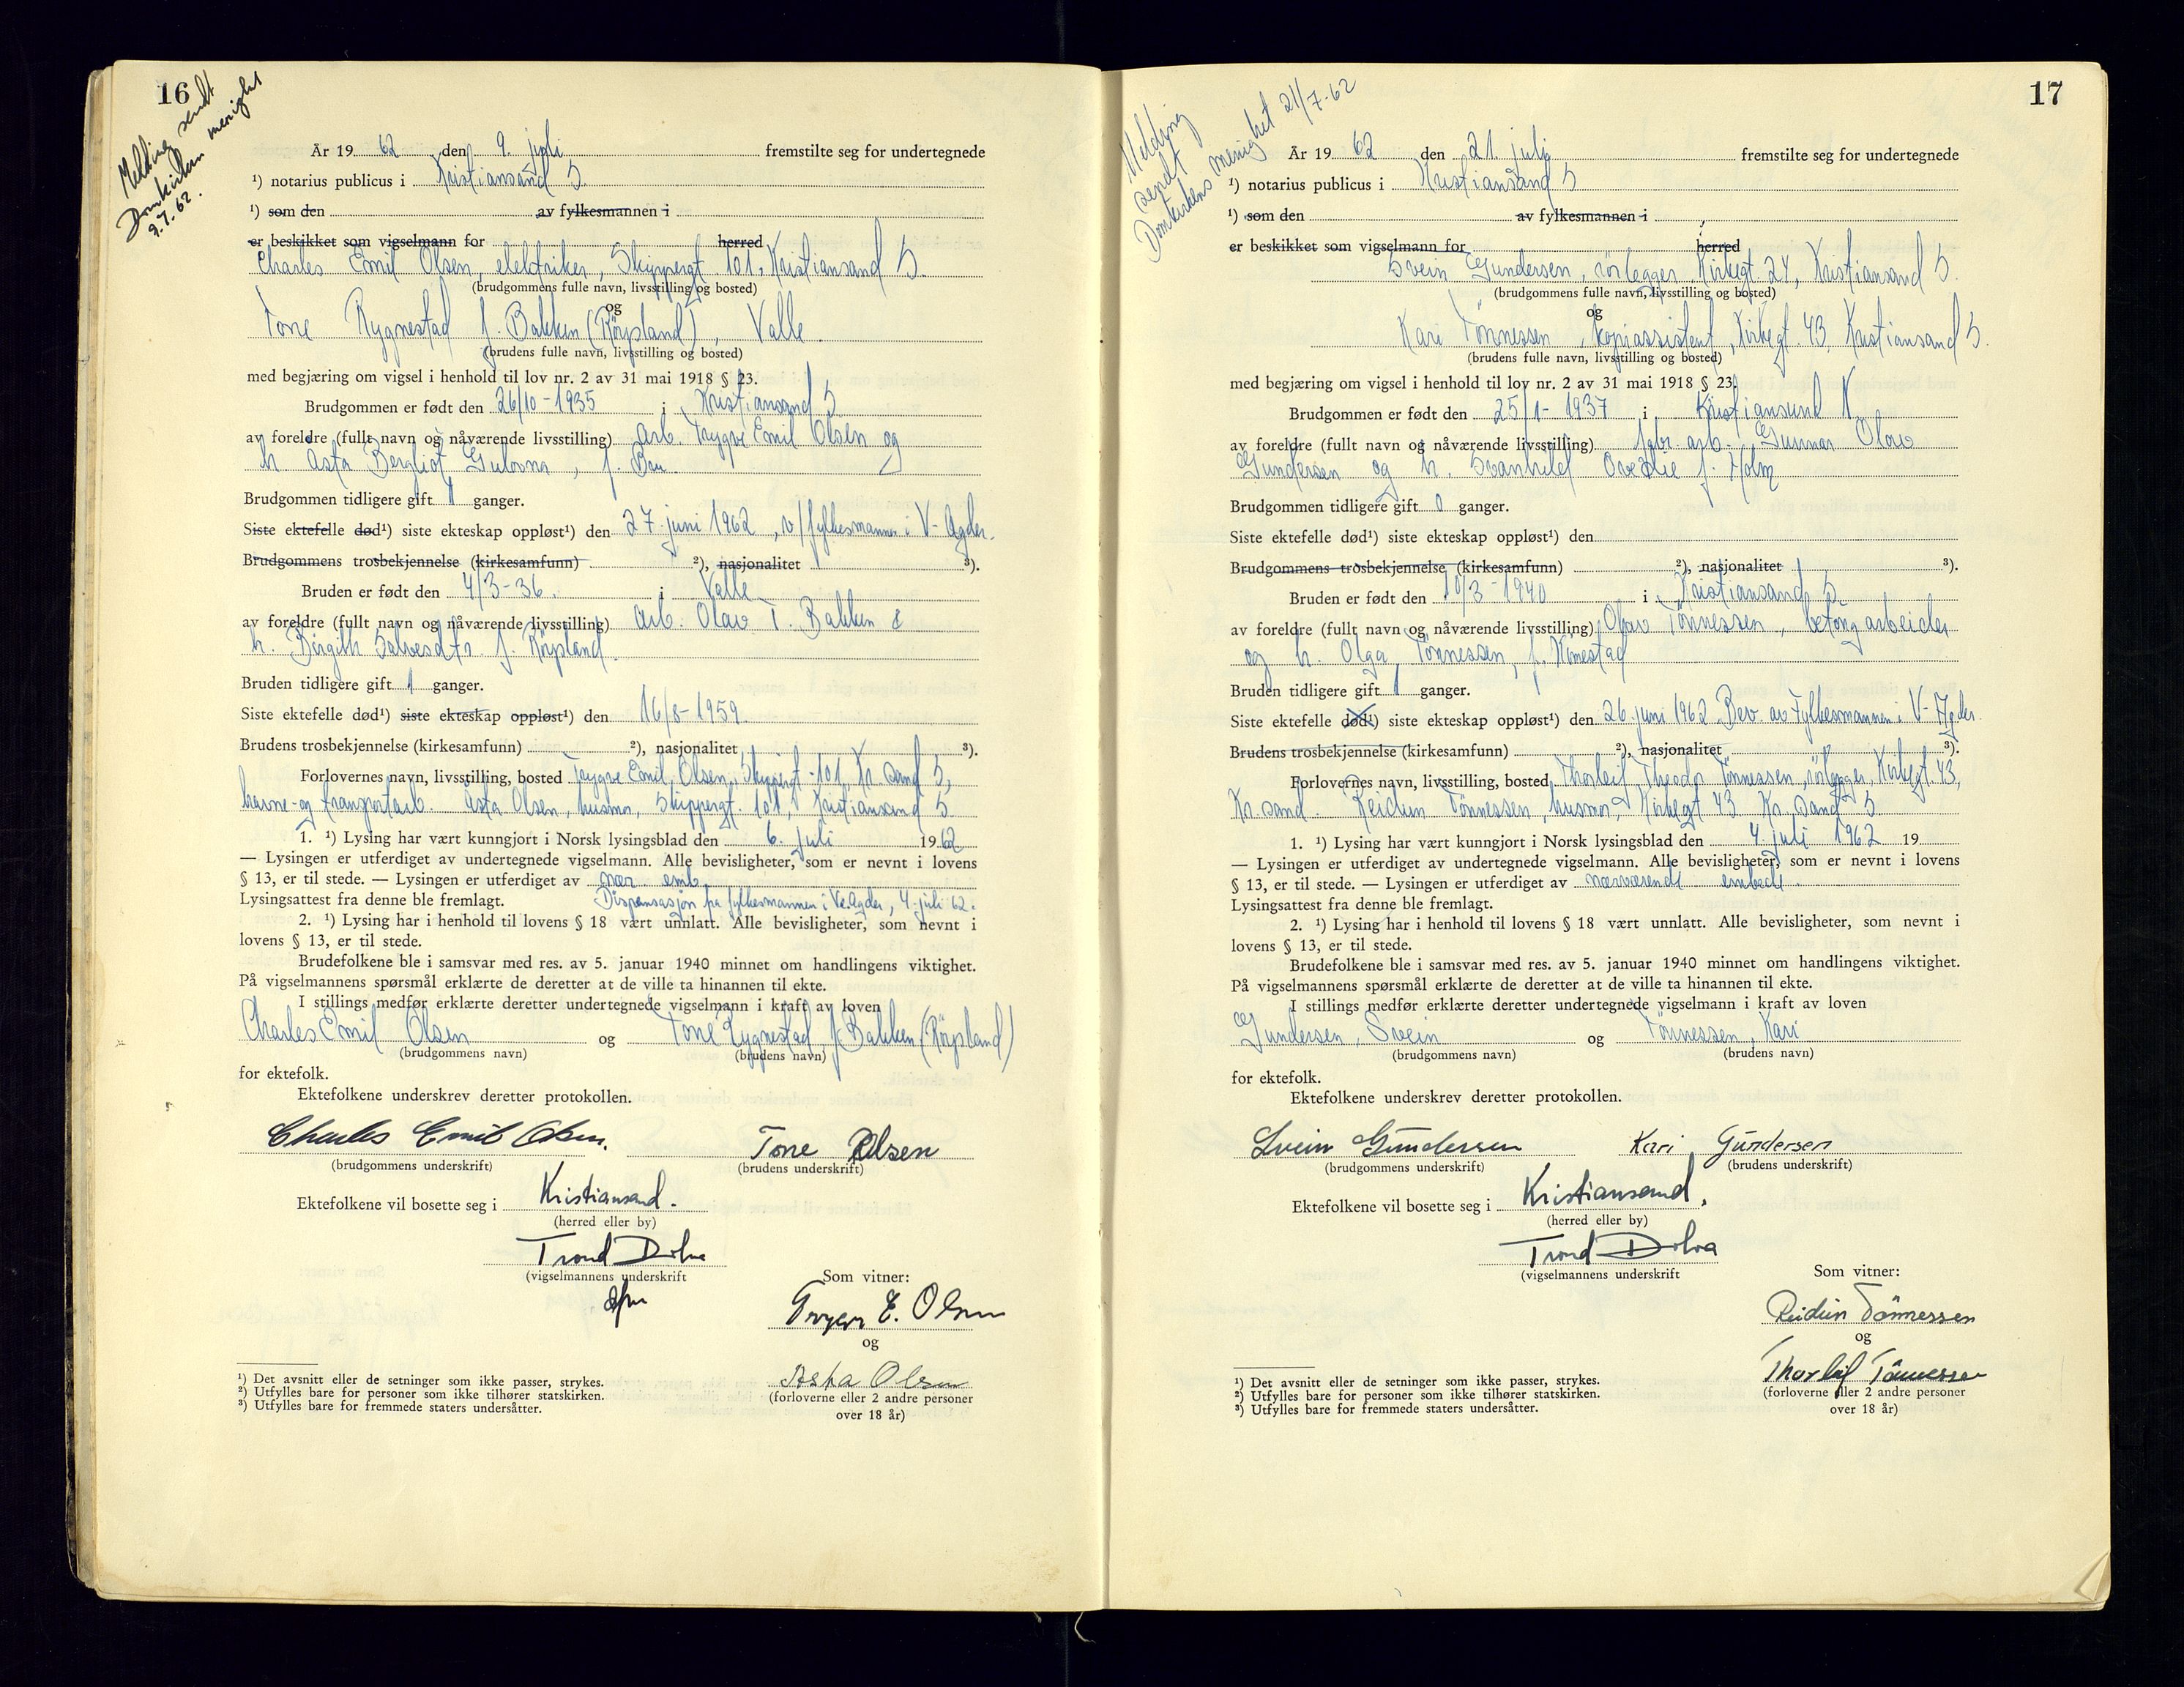 16
Melding sendt
Domkirken menighet
9.7.62.
År 19 62 den 9. juli fremstilte seg for undertegnede
¹) notarius publicus i Kristiansand S
¹) som den av fylkesmannen i
er beskikket som vigselmann for herred
Charles Emil Olsen, elektriker, Skippergt. 101, Kristiansand S.
(brudgommens fulle navn, livsstilling og bosted)
og
Tone Rygnestad f. Bakken (Rörpland), Valle.
(brudens fulle navn, livsstilling og bosted)
med begjæring om vigsel i henhold til lov nr. 2 av 31 mai 1918 § 23.
Brudgommen er født den 26/10 - 1935 i Kristiansand S
av foreldre (fullt navn og nåværende livsstilling) arb. Trygve Emil Olsen og
h. Asta Bergliot Gulovna, f. Bau.
Brudgommen tidligere gift 1 ganger.
Siste ektefelle død¹) siste ekteskap oppløst¹) den 27. juni 1962, v/fylkesmannen i V-Agder.
Brudgommens trosbekjennelse (kirkesamfunn) ²), nasjonalitet ³).
Bruden er født den 4/3-36. i Valle
av foreldre (fullt navn og nåværende livsstilling) arb. Olav T. Bakken &
h. Birgith Salvesdtr. f. Rörpland.
Bruden tidligere gift 1 ganger.
Siste ektefelle død¹) siste ekteskap oppløst¹) den 16/8-1959.
Brudens trosbekjennelse (kirkesamfunn) ²), nasjonalitet ³).
Forlovernes navn, livsstilling, bosted Trygve Emil Olsen, Skippergt. 101, Kr.sand S,
havne- og transportarb. Asta Olsen, husmor, Skippergt. 101, Kristiansand S.
1. ¹) Lysing har vært kunngjort i Norsk lysingsblad den 6. juli 1962
— Lysingen er utferdiget av undertegnede vigselmann. Alle bevisligheter, som er nevnt i lovens
§ 13, er til stede. — Lysingen er utferdiget av nær. emb.
Lysingsattest fra denne ble fremlagt. Dispensasjon fra fylkesmannen i Ve. Agder, 4. juli 62.
2. ¹) Lysing har i henhold til lovens § 18 vært unnlatt. Alle bevisligheter, som nevnt i
lovens § 13, er til stede.
Brudefolkene ble i samsvar med res. av 5. januar 1940 minnet om handlingens viktighet.
På vigselmannens spørsmål erklærte de deretter at de ville ta hinannen til ekte.
I stillings medfør erklærte deretter undertegnede vigselmann i kraft av loven
Charles Emil Olsen og Tone Rygnestad, f. Bakken (Rörpland)
(brudgommens navn) (brudens navn)
for ektefolk.
Ektefolkene underskrev deretter protokollen.
Charles Emil Olsen. Tone Olsen
(brudgommens underskrift) (brudens underskrift)
Ektefolkene vil bosette seg i Kristiansand.
(herred eller by)
Trond Dolva
(vigselmannens underskrift
Som vitner:
Trygve E. Olsen
og
Asta Olsen
(forloverne eller 2 andre personer
over 18 år)
¹) Det avsnitt eller de setninger som ikke passer, strykes.
²) Utfylles bare for personer som ikke tilhører statskirken.
³) Utfylles bare for fremmede staters undersåtter.
17
Melding
sendt
Domkirkens menighet 21/7-62
År 19 62 den 21. juli fremstilte seg for undertegnede
¹) notarius publicus i Kristiansand S
¹) som den av fylkesmannen i
er beskikket som vigselmann for herred
Svein Gundersen, rörlegger, Kirkegt. 24, Kristiansand S.
(brudgommens fulle navn, livsstilling og bosted)
og
Kari Tönnessen, kopiassistent, Kirkegt. 43, Kristiansand S.
(brudens fulle navn, livsstilling og bosted)
med begjæring om vigsel i henhold til lov nr. 2 av 31 mai 1918 § 23.
Brudgommen er født den 25/1-1937 i Kristiansund N.
av foreldre (fullt navn og nåværende livsstilling) fabr. arb. Gunnar Olav
Gundersen og h. Svanhild Overlie f. Holm
Brudgommen tidligere gift 0 ganger.
Siste ektefelle død¹) siste ekteskap oppløst¹) den
Brudgommens trosbekjennelse (kirkesamfunn) ²), nasjonalitet ³).
Bruden er født den 10/3-1940 i Kristiansand S.
av foreldre (fullt navn og nåværende livsstilling) Olav Tönnessen, betongarbeider
og h. Olga Tönnessen, f. Kimestad
Bruden tidligere gift 1 ganger.
Siste ektefelle død¹) siste ekteskap oppløst¹) den 26. juni 1962. Bev. av Fylkesmannen i V-Agder.
Brudens trosbekjennelse (kirkesamfunn) ²), nasjonalitet ³).
Forlovernes navn, livsstilling, bosted Thorleif Theodor Tönnessen, rörlegger, Kirkegt. 43,
Kr.sand. Reidun Tönnessen, husmor, Kirkegt 43 Kr.sand S.
1. ¹) Lysing har vært kunngjort i Norsk lysingsblad den 4. juli 1962 19
— Lysingen er utferdiget av undertegnede vigselmann. Alle bevisligheter, som er nevnt i lovens
§ 13, er til stede. — Lysingen er utferdiget av nærværende embede.
Lysingsattest fra denne ble fremlagt.
2. ¹) Lysing har i henhold til lovens § 18 vært unnlatt. Alle bevisligheter, som nevnt i
lovens § 13, er til stede.
Brudefolkene ble i samsvar med res. av 5. januar 1940 minnet om handlingens viktighet.
På vigselmannens spørsmål erklærte de deretter at de ville ta hinannen til ekte.
I stillings medfør erklærte deretter undertegnede vigselmann i kraft av loven
Gundersen, Svein og Tönnessen, Kari
(brudgommens navn) (brudens navn)
for ektefolk.
Ektefolkene underskrev deretter protokollen.
Svein Gundersen Kari Gundersen
(brudgommens underskrift) (brudens underskrift)
Ektefolkene vil bosette seg i Kristiansand.
(herred eller by)
Trond Dolva
(vigselmannens underskrift
Som vitner:
Reidun Tönnessen
og
Thorleif Tönnessen
(forloverne eller 2 andre personer
over 18 år)
¹) Det avsnitt eller de setninger som ikke passer, strykes.
²) Utfylles bare for personer som ikke tilhører statskirken.
³) Utfylles bare for fremmede staters undersåtter.